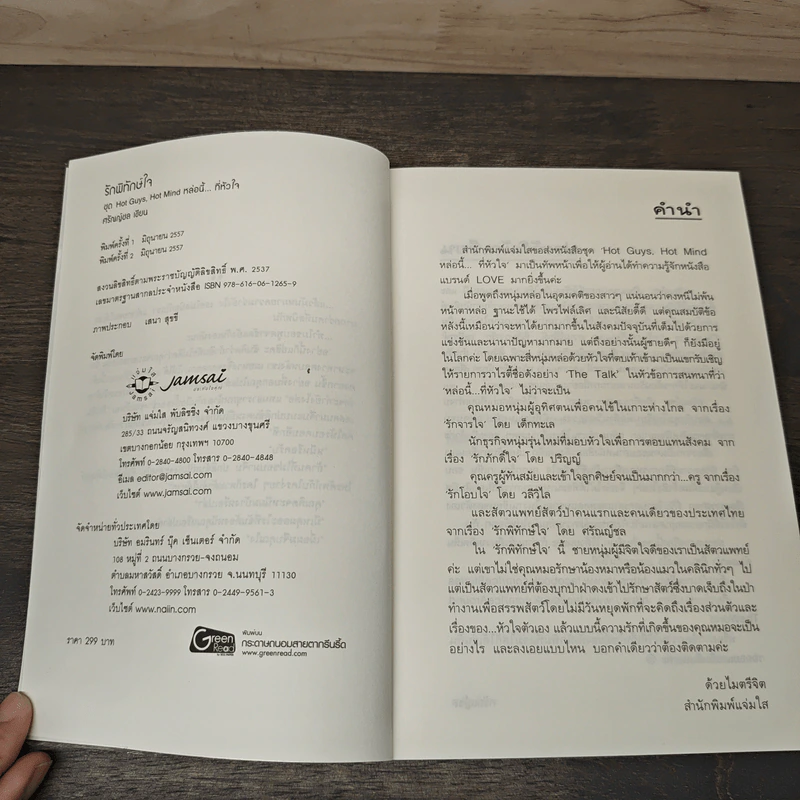 รักพิทักษ์ใจ
ชุด Hot Guys, Hot Mind หล่อนี้... ที่หัวใจ
ศรัณญ์ชล เขียน
พิมพ์ครั้งที่ 1 มิถุนายน 2557
พิมพ์ครั้งที่ 2 มิถุนายน 2557
สงวนลิขสิทธิ์ตามพระราชบัญญัติลิขสิทธิ์ พ.ศ. 2537
เลขมาตรฐานสากลประจำหนังสือ ISBN 978-616-06-1265-9
ภาพประกอบ เสนา สุขชี
จัดพิมพ์โดย
แจ่มใส
Jamsai
Jamsai
บริษัท แจ่มใส พับลิชชิ่ง จำกัด
285/33 ถนนจรัญสนิทวงศ์ แขวงบางขุนศรี
เขตบางกอกน้อย กรุงเทพฯ 10700
โทรศัพท์ 0-2840-4800 โทรสาร 0-2840-4848
อีเมล editor@jamsai.com
เว็บไซต์ www.jamsai.com
จัดจำหน่ายทั่วประเทศโดย
บริษัท อมรินทร์ บุ๊ค เซ็นเตอร์ จำกัด
108 หมู่ที่ 2 ถนนบางกรวย-จงถนอม
ตำบลมหาสวัสดิ์ อำเภอบางกรวย จ.นนทบุรี 11130
โทรศัพท์ 0-2423-9999 โทรสาร 0-2449-9561-3
เว็บไซต์ www.naiin.com
ราคา 299 บาท
Green Read
พิมพ์บน
กระดาษถนอมสายตากรีนรี้ด
www.greenread.com
คำนำ
สำนักพิมพ์แจ่มใสขอส่งหนังสือชุด 'Hot Guys, Hot Mind
หล่อนี้... ที่หัวใจ' มาเป็นทัพหน้าเพื่อให้ผู้อ่านได้ทำความรู้จักหนังสือ
แบรนด์ LOVE มากยิ่งขึ้นค่ะ
เมื่อพูดถึงหนุ่มหล่อในอุดมคติของสาวๆ แน่นอนว่าคงหนีไม่พ้น
หน้าตาหล่อ ฐานะใช้ได้ โพรไฟล์เลิศ และนิสัยดี๊ดี แต่คุณสมบัติข้อ
หลังนี้เหมือนว่าจะหาได้ยากมากขึ้นในสังคมปัจจุบันที่เต็มไปด้วยการ
แข่งขันและนานาปัญหามากมาย แต่ถึงอย่างนั้นผู้ชายดีๆ ก็ยังมีอยู่
ในโลกค่ะ โดยเฉพาะสี่หนุ่มหล่อด้วยหัวใจที่ตบเท้าเข้ามาเป็นแขกรับเชิญ
ให้รายการวาไรตี้ชื่อดังอย่าง 'The Talk' ในหัวข้อการสนทนาที่ว่า
'หล่อนี้...ที่หัวใจ' ไม่ว่าจะเป็น
คุณหมอหนุ่มผู้อุทิศตนเพื่อคนไข้ในเกาะห่างไกล จากเรื่อง
'รักจารใจ' โดย เด็กทะเล
นักธุรกิจหนุ่มรุ่นใหม่ที่มอบหัวใจเพื่อการตอบแทนสังคม จาก
เรื่อง 'รักภักดิ์ใจ' โดย ปริญญ์
คุณครูผู้ทันสมัยและเข้าใจลูกศิษย์จนเป็นมากกว่า...ครู จากเรื่อง
'รักโอบใจ' โดย วลีวิไล
และสัตวแพทย์สัตว์ป่าคนแรกและคนเดียวของประเทศไทย
จากเรื่อง 'รักพิทักษ์ใจ' โดย ศรัณญ์ชล
ใน 'รักพิทักษ์ใจ' นี้ ชายหนุ่มผู้มีจิตใจดีของเราเป็นสัตวแพทย์
ค่ะ แต่เขาไม่ใช่คุณหมอรักษาน้องหมาหรือน้องแมวในคลินิกทั่วๆ ไป
แต่เป็นสัตวแพทย์ที่ต้องบุกป่าฝ่าดงเข้าไปรักษาสัตว์ซึ่งบาดเจ็บถึงในป่า
ทำงานเพื่อสรรพสัตว์โดยไม่มีวันหยุดพักที่จะคิดถึงเรื่องส่วนตัวและ
เรื่องของ...หัวใจตัวเอง แล้วแบบนี้ความรักที่เกิดขึ้นของคุณหมอจะเป็น
อย่างไร และลงเอยแบบไหน บอกคำเดียวว่าต้องติดตามค่ะ
ด้วยไมตรีจิต
สำนักพิมพ์แจ่มใส